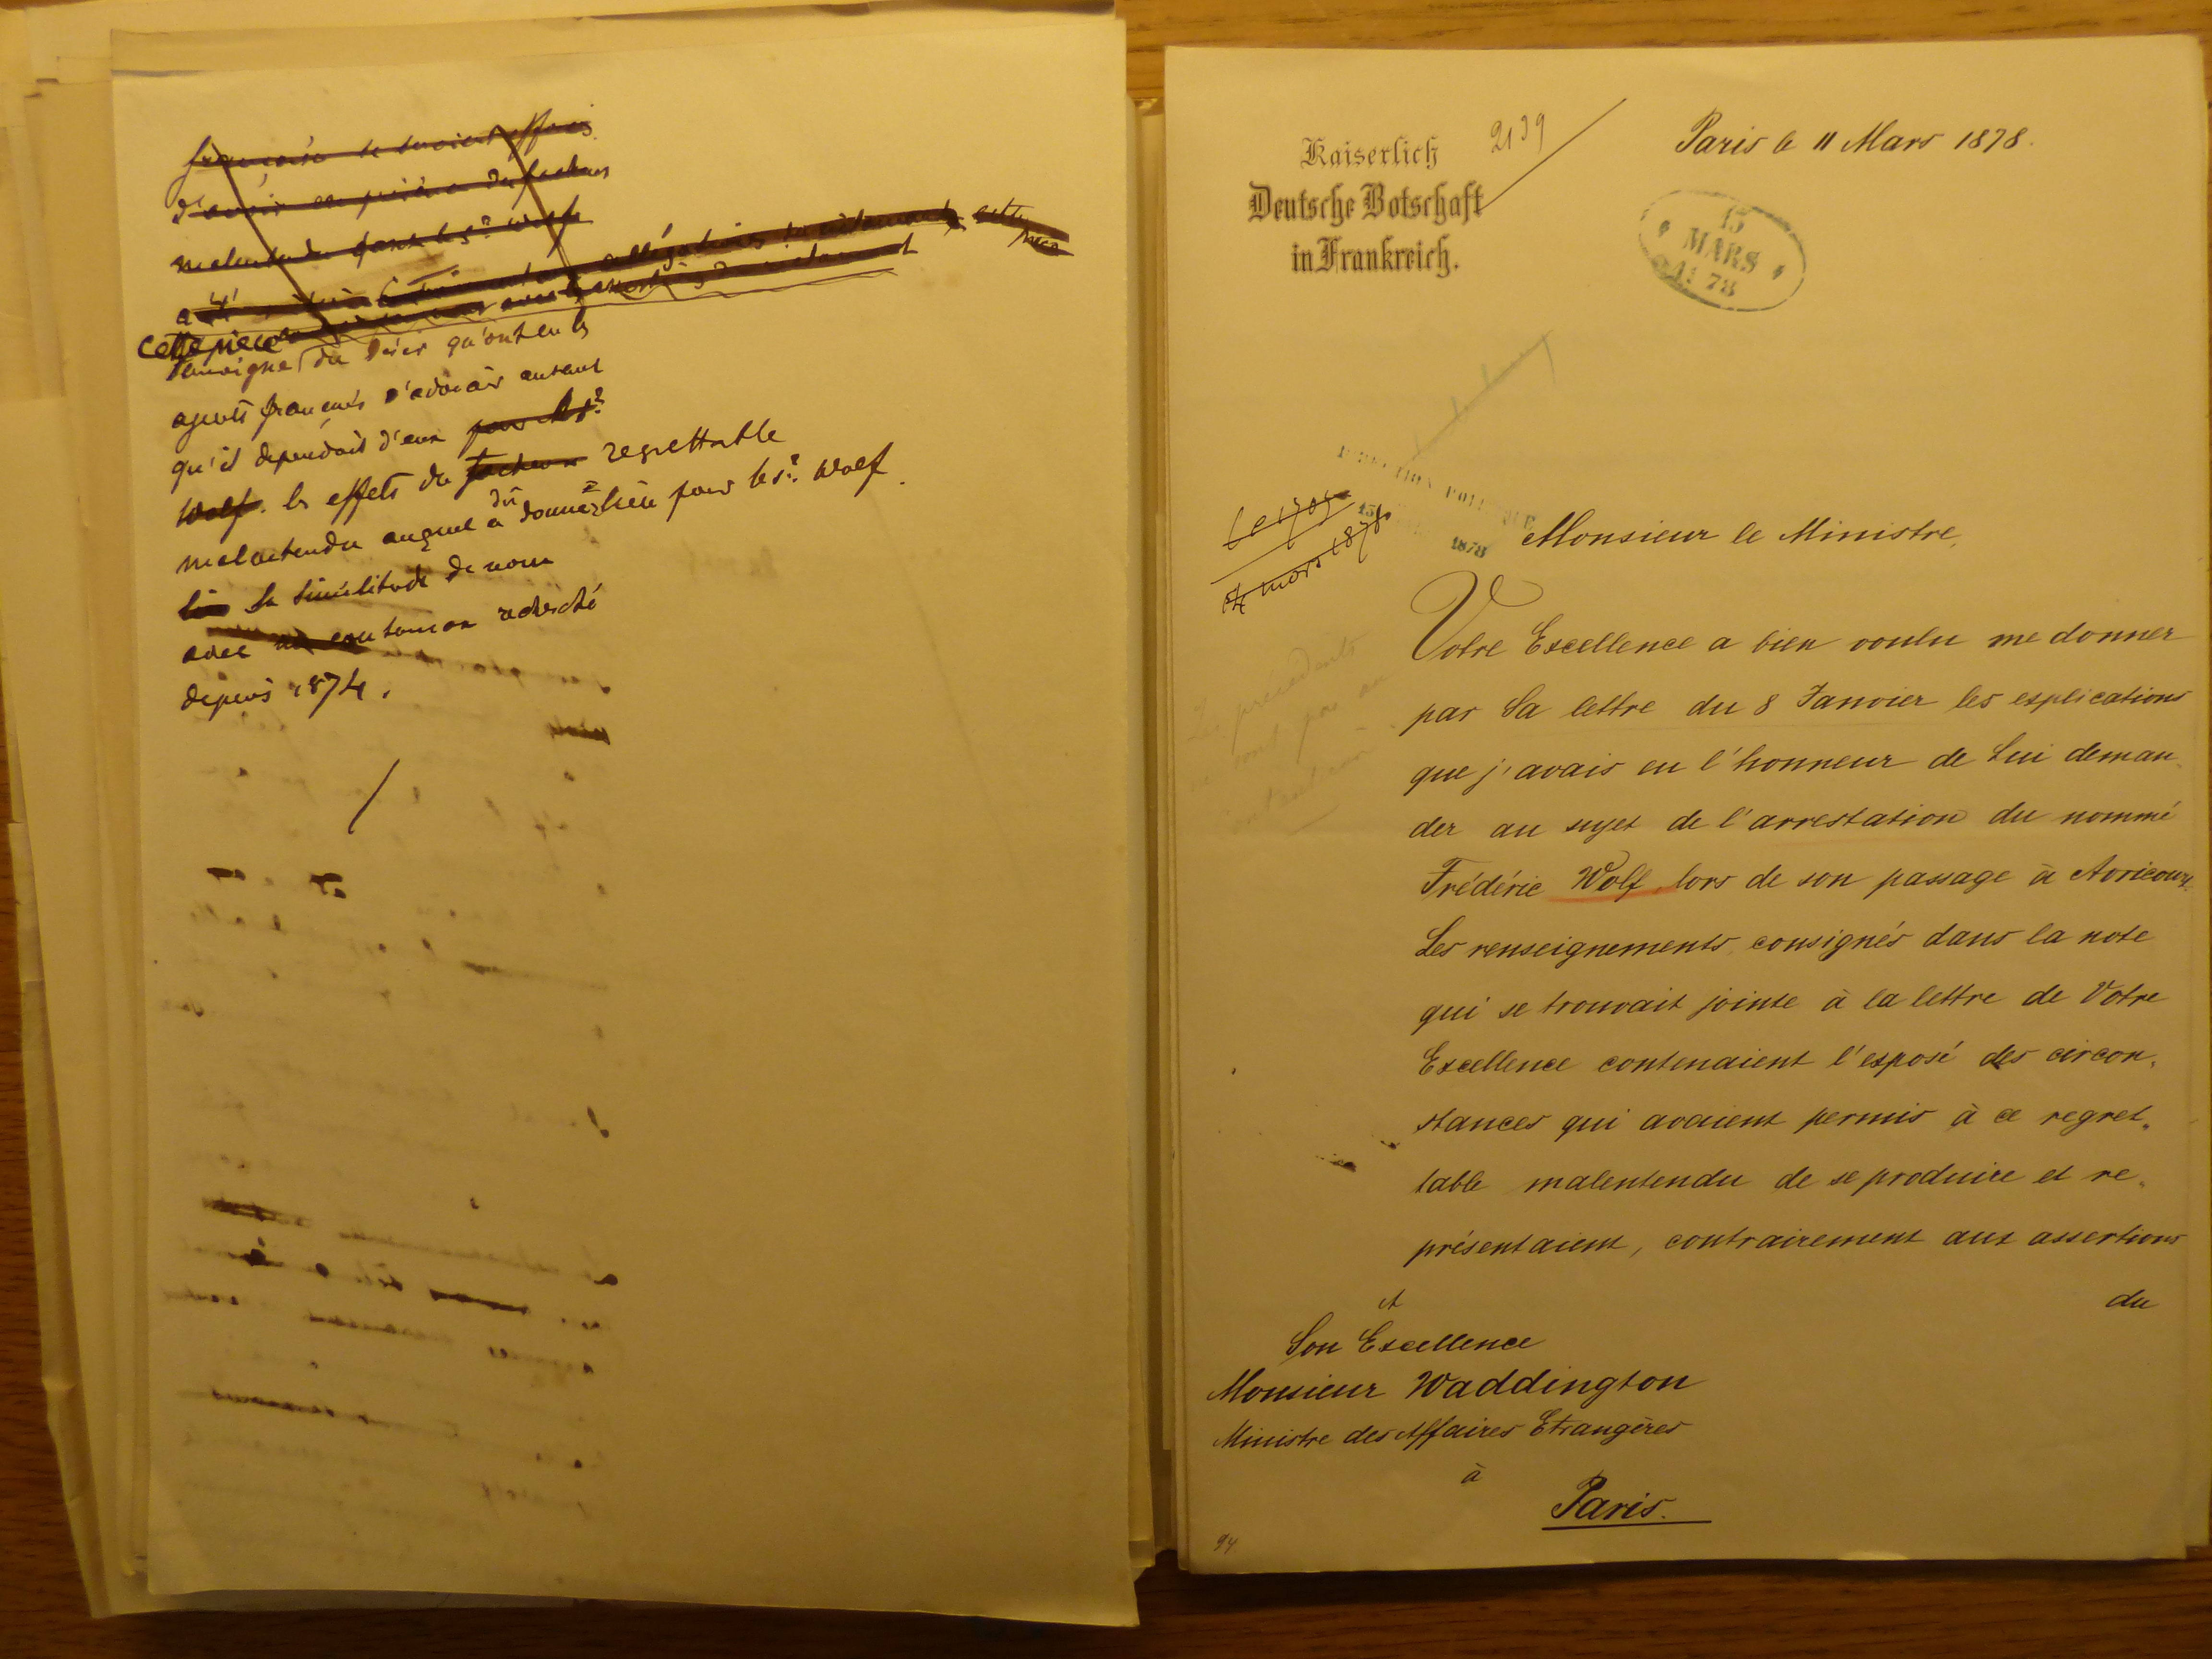 française se soient efforcés
d'avoir
malentendu dont le Sr Wolf
a été
allégations
cette pièce
cette pièce
témoigne du désir qu'ont eu les
agents français d'adoucir autant
qu'il dépendait d'eux pour le Sr
Wolf. les effets du facheux regrettable
malentendu auquel a dû donner lieu pour le Sr. Wolf
lieu la similitude de nom
avec un contumax recherché
depuis 1874.
Kaiserlich
Deutsche Botschaft
in Frankreich.
2139
Paris le 11 Mars 1878.
15
MARS
78
DIRECTION POLITIQUE
15
1878
mars 1878
Les précédents
ne sont pas au
Monsieur le Ministre,
Votre Excellence a bien voulu me donner
par Sa lettre du 8 Janvier les explications
que j'avais eu l'honneur de Lui deman-
der au sujet de l'arrestation du nommé
Frédéric Wolf, lors de son passage à Avricourt.
Les renseignements consignés dans la note
qui se trouvait jointe à la lettre de Votre
Excellence contenaient l'exposé des circon-
stances qui avaient permis à ce regret-
table malentendu de se produire et re-
présentaient, contrairement aux assertions
du
A
Son Excellence
Monsieur Waddington
Ministre des Affaires Etrangères
à
Paris.
94